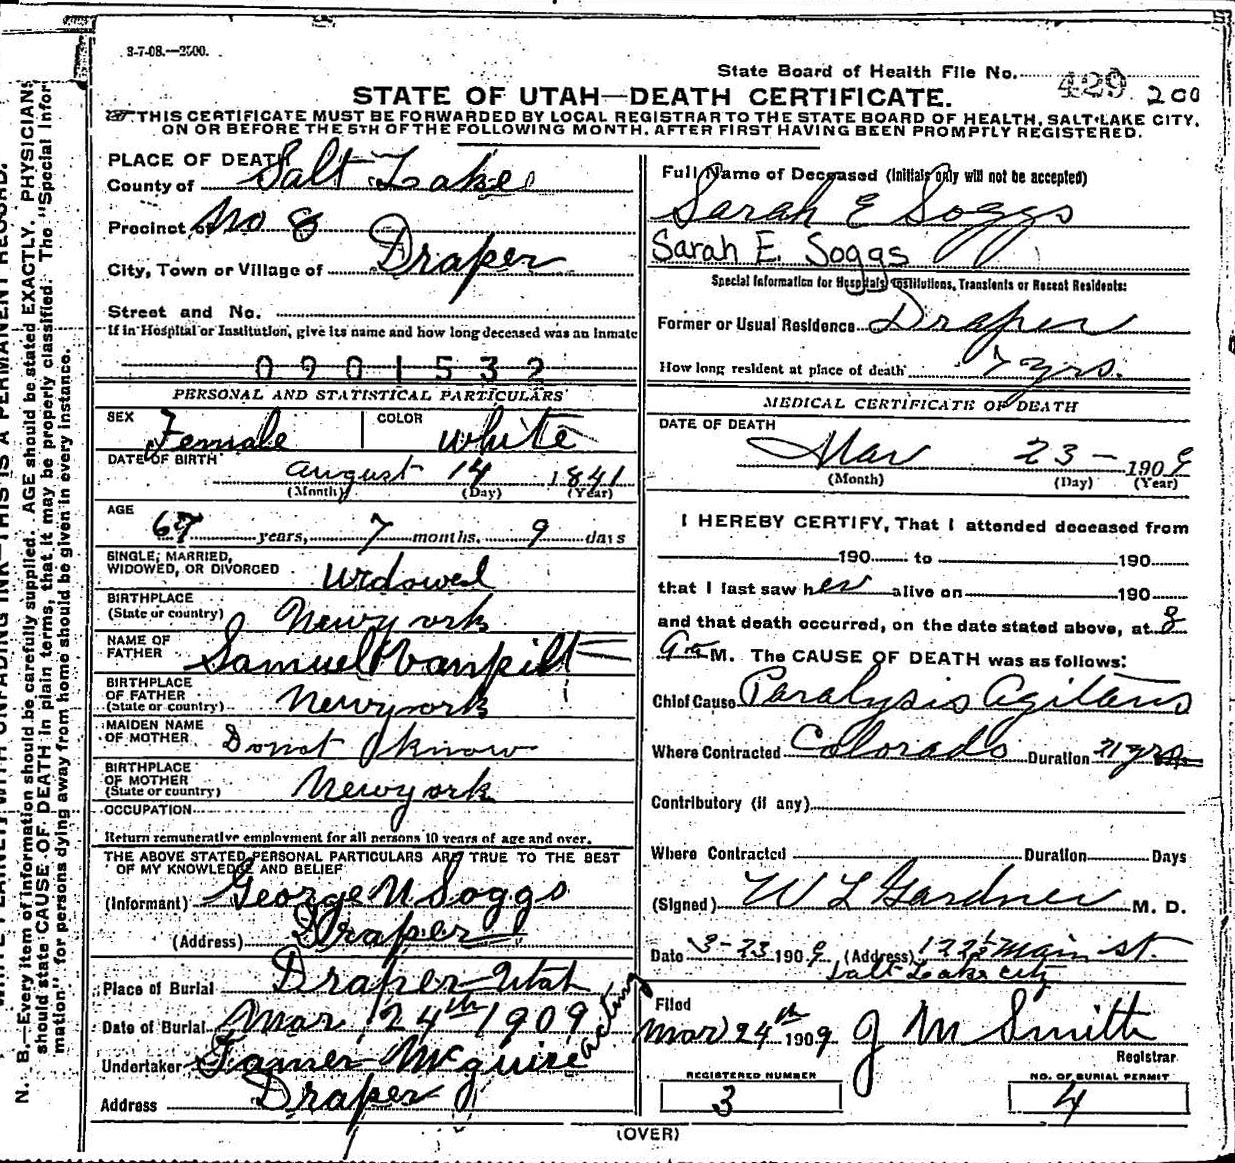 3-7-08.—2500.
State Board of Health File No. 429 200
STATE OF UTAH—DEATH CERTIFICATE.
THIS CERTIFICATE MUST BE FORWARDED BY LOCAL REGISTRAR TO THE STATE BOARD OF HEALTH, SALT LAKE CITY,
ON OR BEFORE THE 5TH OF THE FOLLOWING MONTH, AFTER FIRST HAVING BEEN PROMPTLY REGISTERED.
PLACE OF DEATH
County of Salt Lake
Precinct of No 8
City, Town or Village of Draper
Street and No.
If in Hospital or Institution, give its name and how long deceased was an inmate
0901532
PERSONAL AND STATISTICAL PARTICULARS
SEX Female COLOR white
DATE OF BIRTH august 14 1841
(Month) (Day) (Year)
AGE
67 years, 7 months, 9 days
SINGLE, MARRIED,
WIDOWED, OR DIVORCED Widowed
BIRTHPLACE
(State or country) Newyork
NAME OF
FATHER Samuel Vanpilt
BIRTHPLACE
OF FATHER
(State or country) Newyork
MAIDEN NAME
OF MOTHER Donot know
BIRTHPLACE
OF MOTHER
(State or country) Newyork
OCCUPATION
Return remunerative employment for all persons 10 years of age and over.
THE ABOVE STATED PERSONAL PARTICULARS ARE TRUE TO THE BEST
OF MY KNOWLEDGE AND BELIEF
(Informant) George N Soggs
(Address) Draper
Place of Burial Draper Utah
Date of Burial Mar 24th 1909
Undertaker McGuire acting
Address Draper
Full Name of Deceased (Initials only will not be accepted)
Sarah E Soggs
Sarah E. Soggs
Special Information for Hospitals, Institutions, Transients or Recent Residents:
Former or Usual Residence Draper
How long resident at place of death 7 yrs.
MEDICAL CERTIFICATE OF DEATH
DATE OF DEATH
Mar 23- 1909
(Month) (Day) (Year)
I HEREBY CERTIFY, That I attended deceased from
190 to 190
that I last saw her alive on 190
and that death occurred, on the date stated above, at 8
a M. The CAUSE OF DEATH was as follows:
Chief Cause Paralysis Agitans
Where Contracted Colorado Duration yrs
Contributory (if any)
Where Contracted Duration Days
(Signed) W L Gardner M. D.
Date 3-23 1909 (Address) 122½ Main st.
Salt Lake city
Filed
Mar 24th 1909 J M Smith
Registrar
REGISTERED NUMBER NO. OF BURIAL PERMIT
3 4
(OVER)
N. B.—Every item of information should be carefully supplied. AGE should be stated EXACTLY. PHYSICIANS
should state CAUSE OF DEATH in plain terms, that it may be properly classified. The "Special Infor-
mation" for persons dying away from home should be given in every instance.